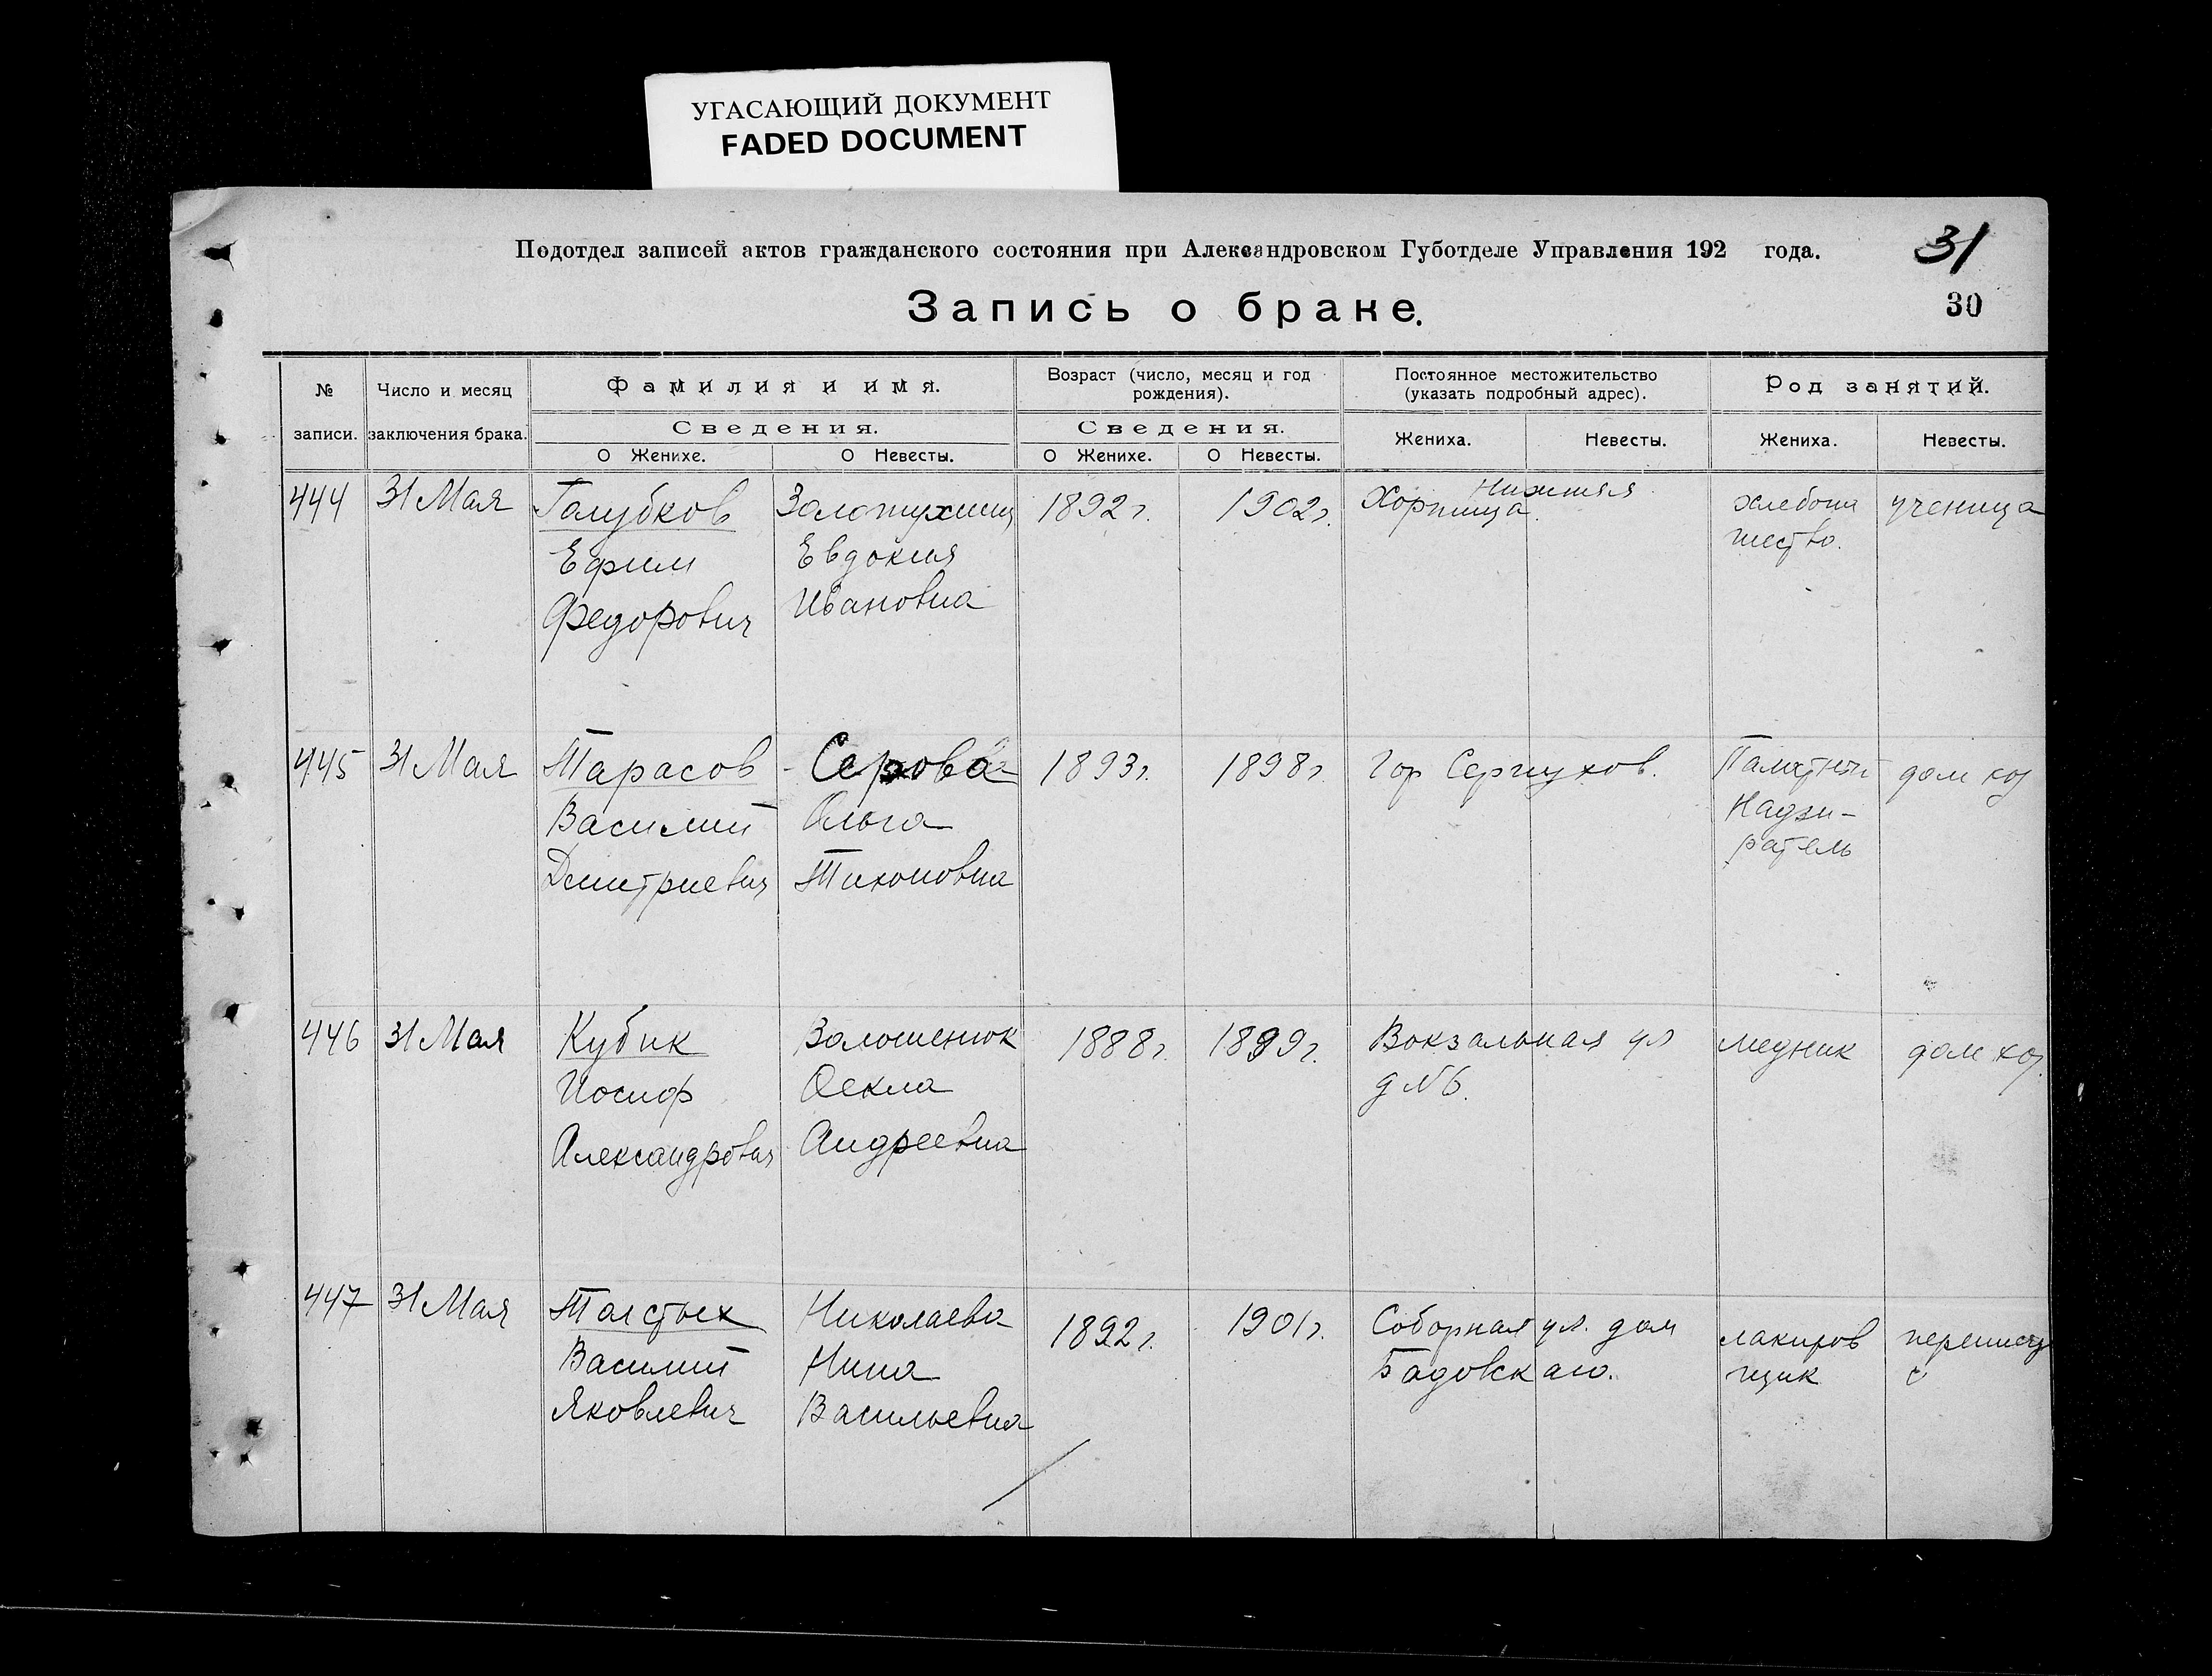 УГАСАЮЩИЙ ДОКУМЕНТ
FADED DOCUMENT
Подотдел записей актов гражданского состояния при Александровском Губотделе Управления 192 года.
31
Запись о браке.
30
№ записи.
Число и месяц заключения брака.
Фамилия и имя.
Сведения.
О Женихе.
О Невесты.
Возраст (число, месяц и год рождения).
Сведения.
О Женихе.
О Невесты.
Постоянное местожительство (указать подробный адрес).
Жениха.
Невесты.
Род занятий.
Жениха.
Невесты.
444
31 Мая
Голубков
Ефим
Федорович
Евдокия
Ивановна
1892 г.
1902 г.
Нижняя
Хортица.
хлебопа
шество.
ученица
445
31 Мая
Тарасов
Василий
Дмитриевич
Серова
Ольга
Тихоновна
1893 г.
1898 г.
Гор Серпухов.
Надзи-
ратель
дом хоз
446
31 Мая
Кубик
Иосиф
Александрович
Волошенюк
Фекла
Андреевна
1888 г.
1899 г.
Вокзальная ул
д № 6.
медник
дом хоз.
447
31 Мая
Толстых
Василий
Яковлевич
Николаева
Нина
Васильевна
1892 г.
1901 г.
Соборная ул. дом
Бадовскаго.
лакиров
щик